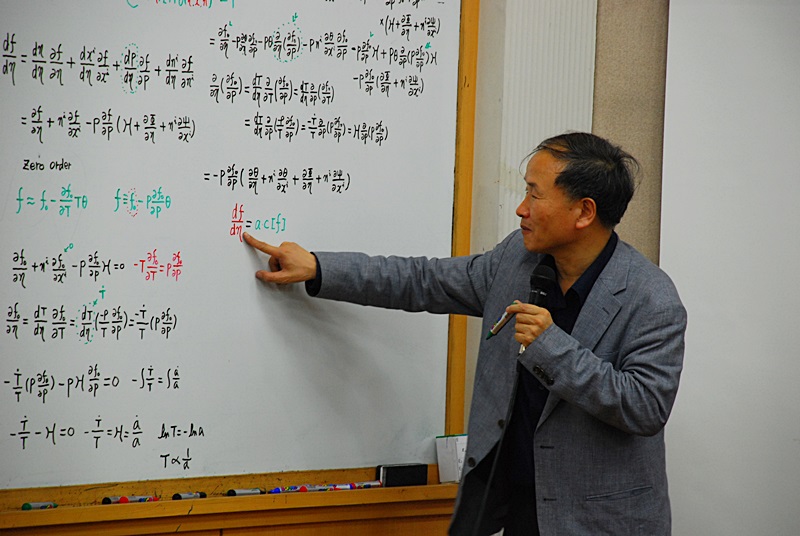 df/dη = dη/dη ∂f/∂η + dxⁱ/dη ∂f/∂xⁱ + dp/dη ∂f/∂p + dnⁱ/dη ∂f/∂nⁱ
= ∂f/∂η + nⁱ ∂f/∂xⁱ - p ∂f/∂p (H + ∂Φ/∂η + nⁱ ∂ψ/∂xⁱ)
Zero order
f ≈ f₀ - ∂f₀/∂T Tθ f ≅ f₀ - p ∂f₀/∂p θ
∂f₀/∂η + nⁱ ∂f₀/∂xⁱ →0 - p ∂f₀/∂p H = 0 -T ∂f₀/∂T = p ∂f₀/∂p
∂f₀/∂η = dT/dη ∂f₀/∂T = dT/dη (-p/T ∂f₀/∂p) = -Ṫ/T (p ∂f₀/∂p)
-Ṫ/T (p ∂f₀/∂p) - pH ∂f₀/∂p = 0 -∫Ṫ/T = ∫ȧ/a
-Ṫ/T - H = 0 -Ṫ/T = H = ȧ/a lnT = -ln a
T ∝ 1/a
×(H + ∂Φ/∂η + nⁱ ∂ψ/∂xⁱ)
-p ∂f₀/∂p (∂Φ/∂η + nⁱ ∂ψ/∂xⁱ)
∂/∂η (∂f₀/∂p) = dT/dη ∂/∂T (∂f₀/∂p) = dT/dη ∂/∂p (∂f₀/∂T)
= dT/dη ∂/∂p (-p/T ∂f₀/∂p) = -Ṫ/T ∂/∂p (p ∂f₀/∂p) = H ∂/∂p (p ∂f₀/∂p)
= -p ∂f₀/∂p (∂θ/∂η + nⁱ ∂θ/∂xⁱ + ∂Φ/∂η + nⁱ ∂ψ/∂xⁱ)
df/dη = a c[f]